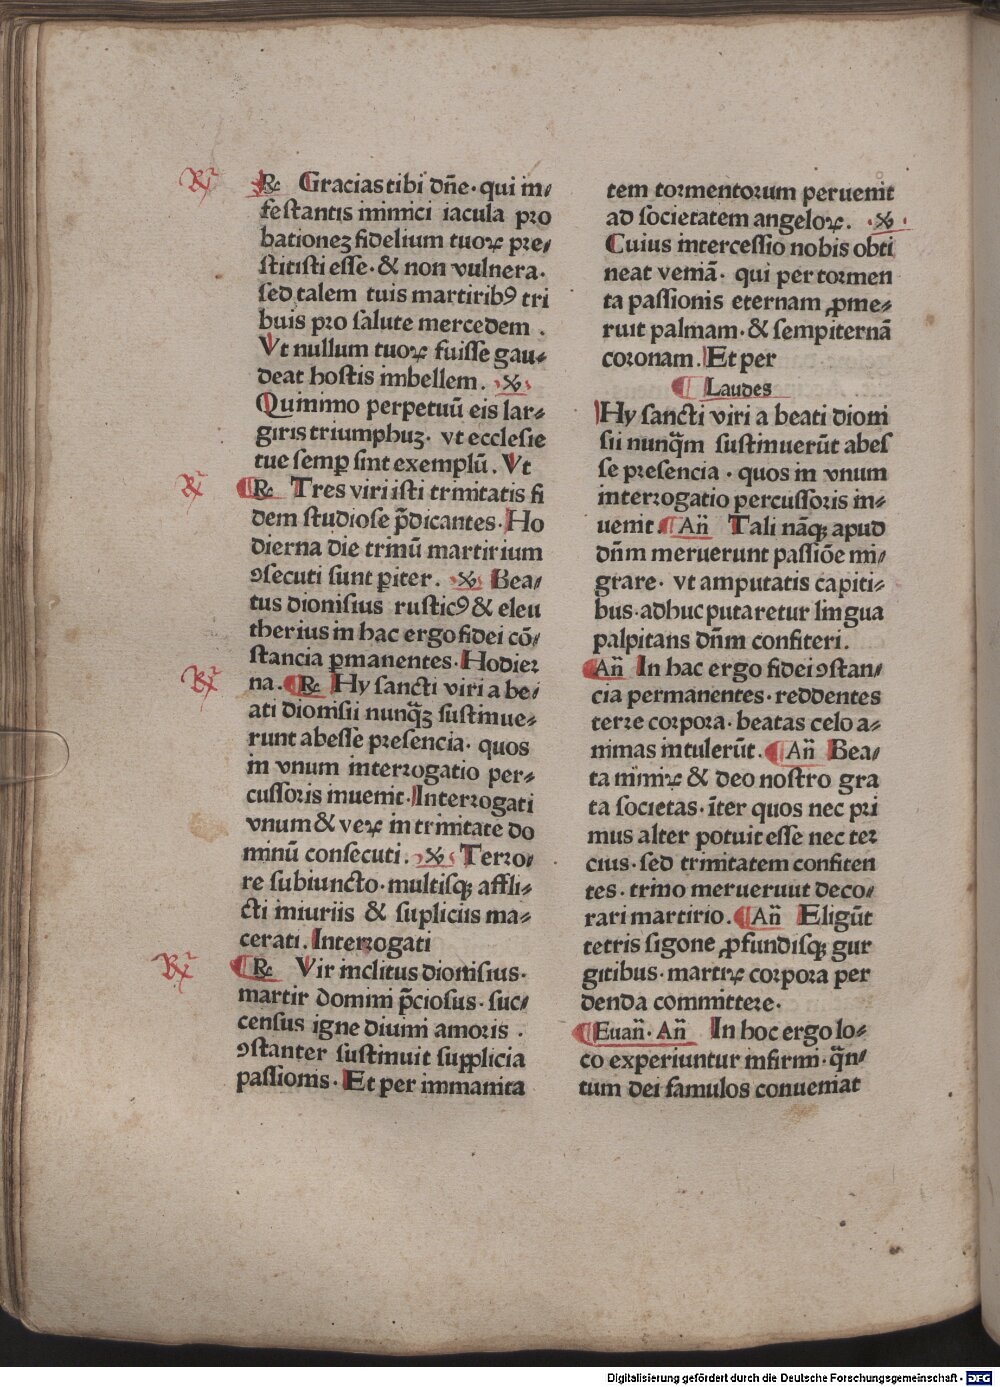 ℟ Gracias tibi dñe · qui in⸗
festantis inimici iacula pro
bationeꝫ fidelium tuoꝝ pre⸗
stitisti esse · & non vulnera ·
sed talem tuis martiribꝰ tri
buis pro salute mercedem .
Vt nullum tuoꝝ fuisse gau⸗
deat hostis imbellem . ℣
Quinimo perpetuū eis lar⸗
giris triumphuꝫ · vt ecclesie
tue semꝑ sint exemplū . Vt
℟ Tres viri isti trinitatis fi
dem studiose p̄dicantes · Ho
dierna die trinū martirium
ꝯsecuti sunt ꝑiter . ℣ Bea⸗
tus dionisius rusticꝰ & eleu
therius in hac ergo fidei cō⸗
stancia ꝑmanentes · Hodier
na . ℟ Hy sancti viri a be⸗
ati dionisii nunq̄ꝫ sustinue⸗
runt abesse presencia · quos
in vnum interrogatio per⸗
cussoris inuenit · Interrogati
vnum & veꝝ in trinitate do
minū consecuti . ℣ Terro⸗
re subiuncto · multisqꝫ affli⸗
cti iniuriis & supliciis ma⸗
cerati . Interrogati
℟ Vir inclitus dionisius ·
martir domini p̄ciosus · suc⸗
census igne diuini amoris .
ꝯstanter sustinuit supplicia
passionis · Et per immanita
tem tormentorum peruenit
ad societatem angeloꝝ . ℣
Cuius intercessio nobis obti
neat veniā · qui per tormen
ta passionis eternam ꝓme⸗
ruit palmam · & sempiternā
coronam . Et per
Laudes
Hy sancti viri a beati dioni
sii nunq̄m sustinuerūt abes
se presencia · quos in vnum
interrogatio percussoris in⸗
uenit · Añ Tali nāqꝫ apud
dñm meruerunt passiōe mi⸗
grare · vt amputatis capiti⸗
bus · adhuc putaretur lingua
palpitans dñm confiteri .
Añ In hac ergo fidei ꝯstan⸗
cia permanentes · reddentes
terre corpora · beatas celo a⸗
nimas intulerūt . Añ Bea⸗
ta nimiꝝ & deo nostro gra
ta societas · īter quos nec pri
mus alter potuit esse nec ter
cius · sed trinitatem confiten
tes · trino meruerunt deco⸗
rari martirio . Añ Eligūt
tetris sigone ꝓfundisqꝫ gur
gitibus · martiꝝ corpora per
denda committere ·
Euañ · Añ In hoc ergo lo⸗
co experiuntur infirmi · q̄n⸗
tum dei famulos conueniat
Digitalisierung gefördert durch die Deutsche Forschungsgemeinschaft - DFG